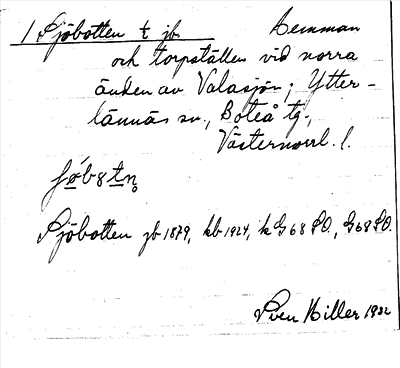 1 Sjöbotten t jb. Hemman
och torpställen vid norra
änden av Valasjön; Ytter-
lännäs sn., Boteå tg.,
Västernorrl. l.
Sjöbotten jb 1879, kb 1924, k G 68 SO., G 68 SO.
Sven Hiller 1932